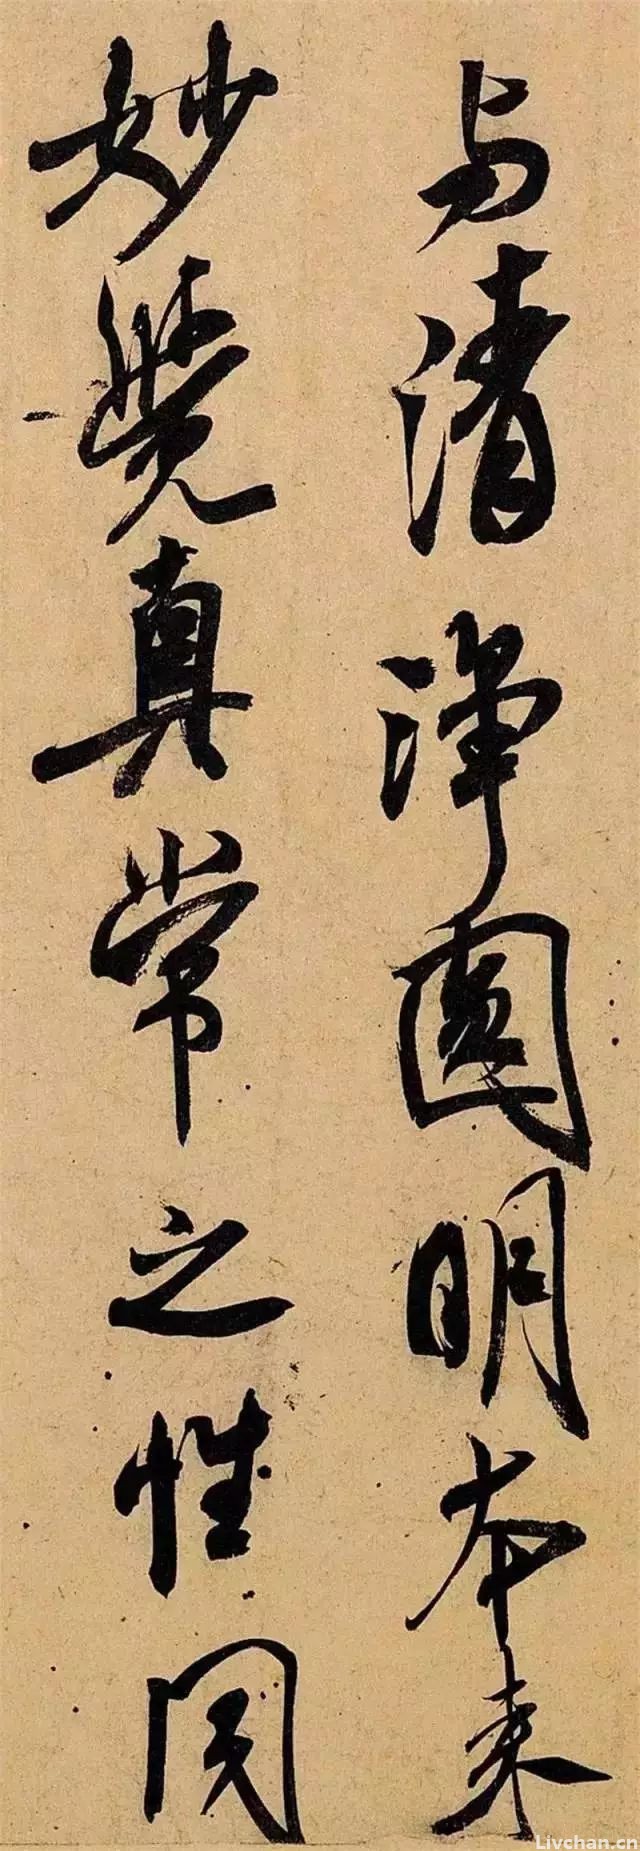 与清淨圓明本来
妙覺真常之性
Livchan.cn